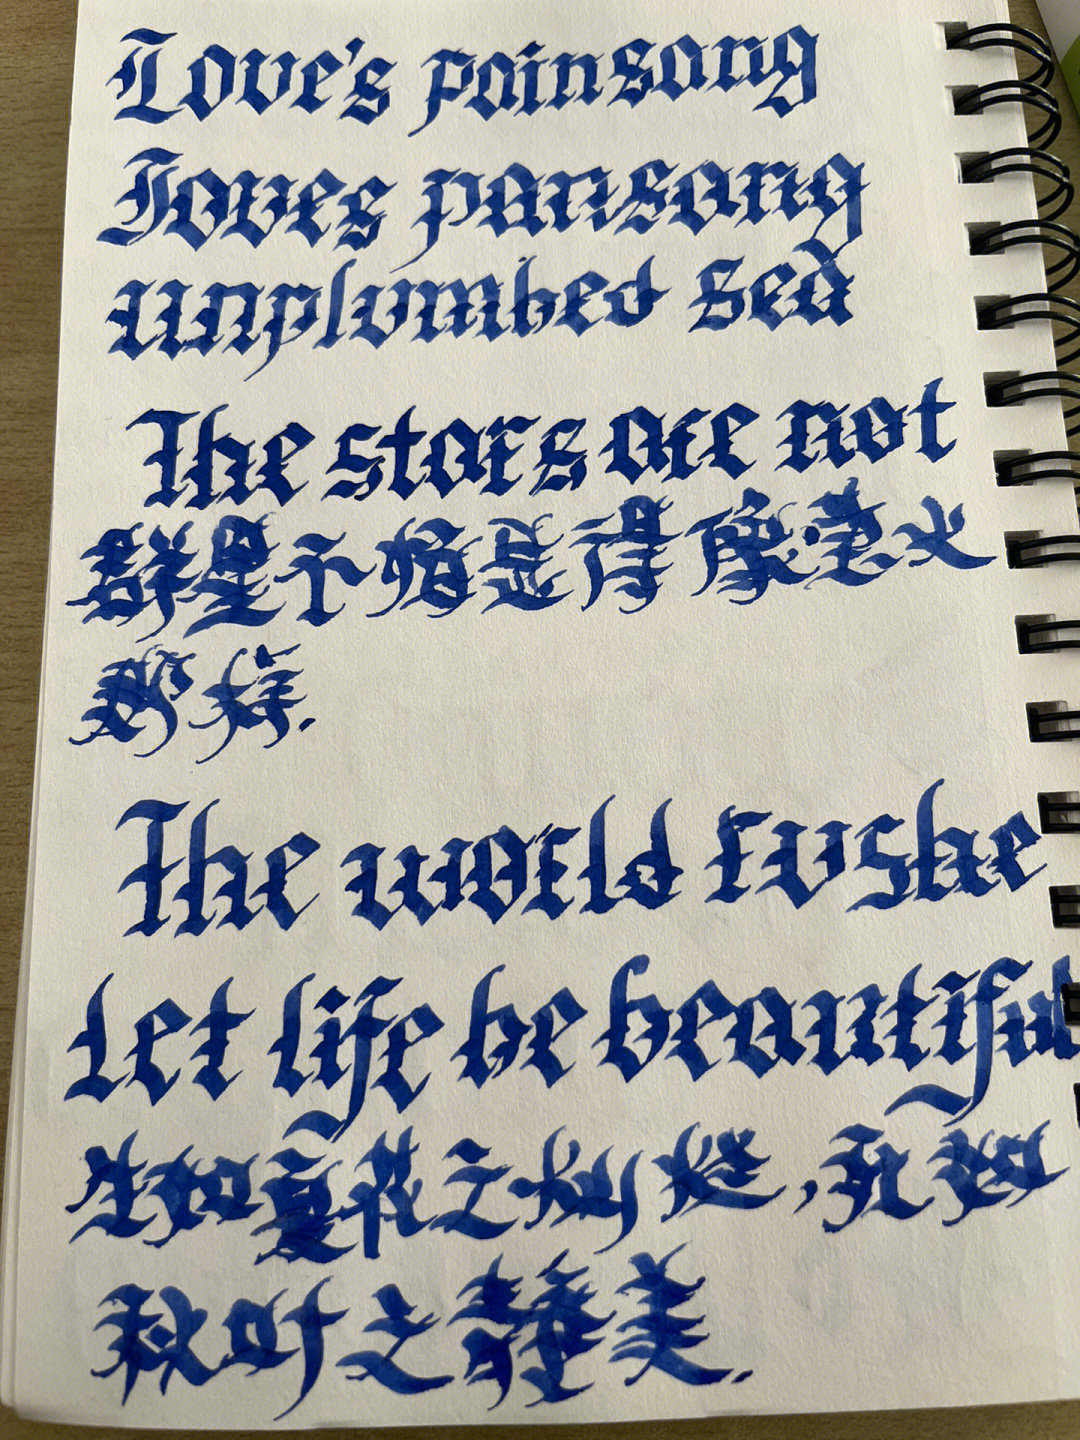 Love's painsong
Joves pansang
unplumbed sea
The stars are not
群星不怕显得像萤火
那样.
The world rushe
Let life be beautiful
生如夏花之灿烂,死如
秋叶之静美.